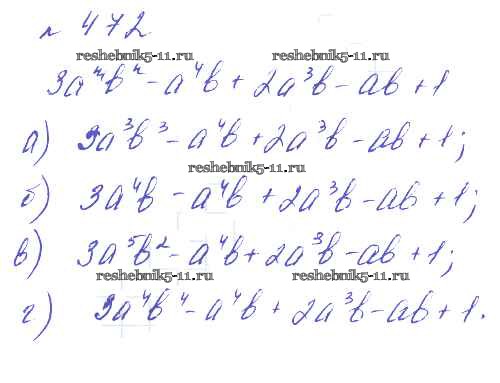 № 472
reshebnik5-11.ru reshebnik5-11.ru
3a⁴b⁴ - a⁴b + 2a³b - ab + 1
а) 3a³b³ - a⁴b + 2a³b - ab + 1;
reshebnik5-11.ru
б) 3a⁴b - a⁴b + 2a³b - ab + 1;
в) 3a⁵b² - a⁴b + 2a³b - ab + 1;
reshebnik5-11.ru reshebnik5-11.ru
г) 3a⁴b⁴ - a⁴b + 2a³b - ab + 1.